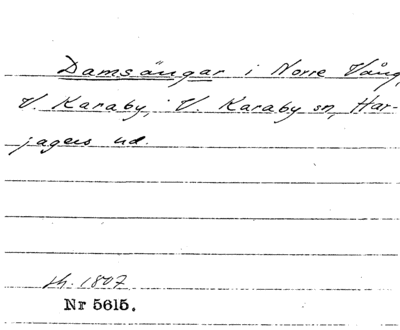 Damsängar i Norre Vång,
V. Karaby, V. Karaby sn, Har-
jagers hd.
sh. 1807
Nr 5615.